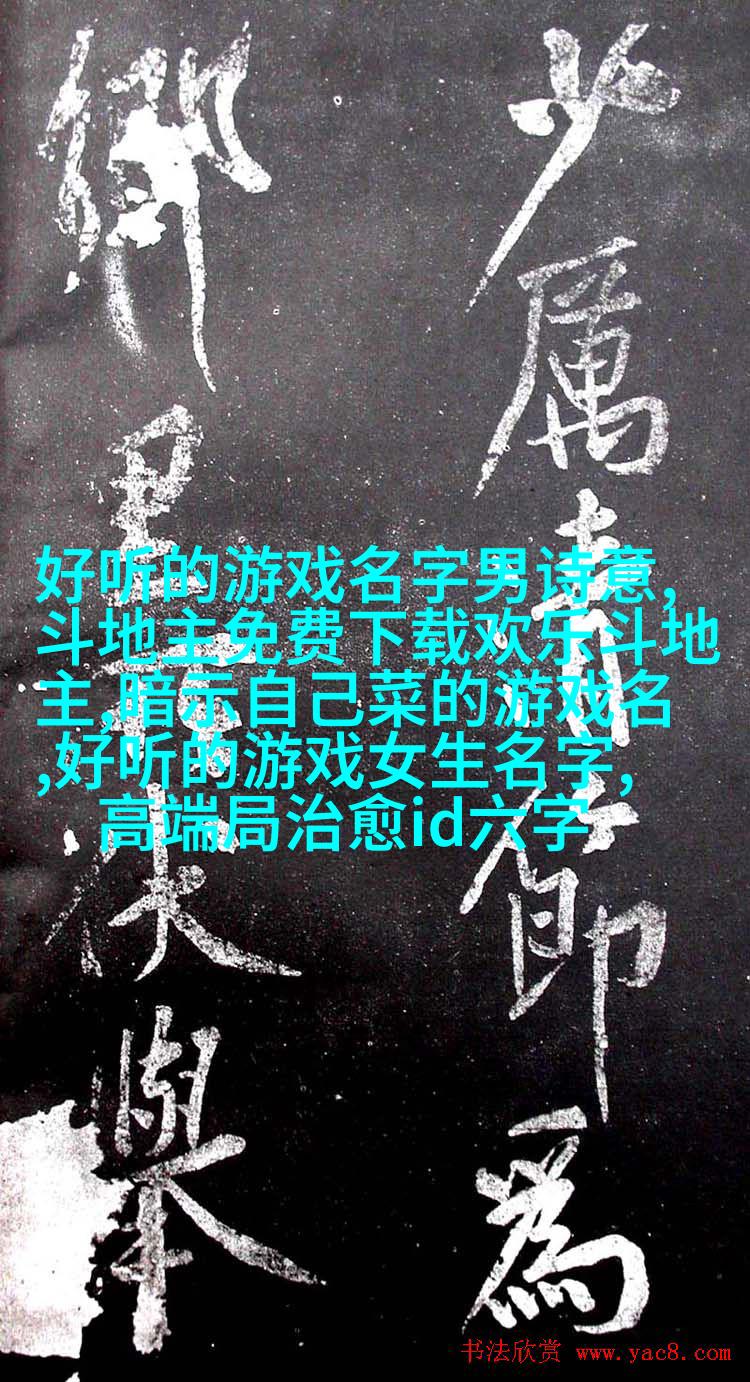 少厲清節為
鄉里伏舉
好听的游戏名字男诗意,
斗地主免费下载欢乐斗地
主,暗示自己菜的游戏名
,好听的游戏女生名字,
高端局治愈id六字
书法欣赏 www.yac8.com